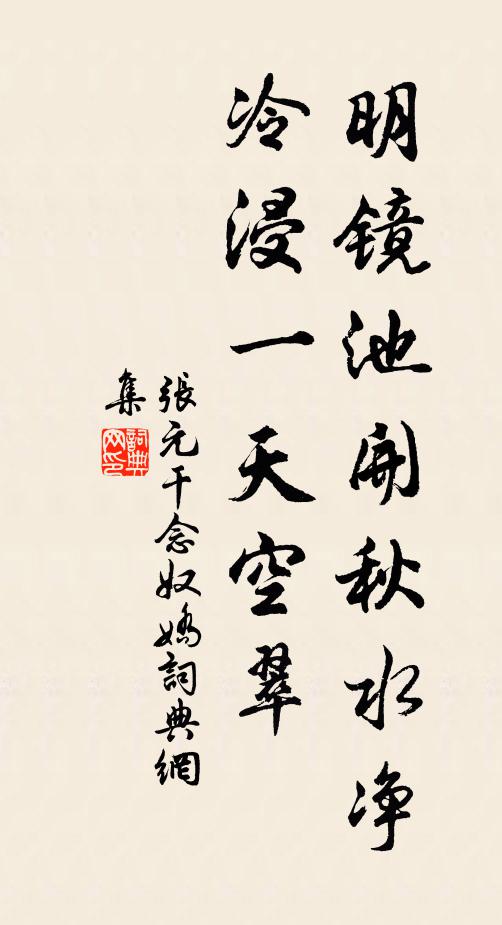 明镜池開秋水净
冷浸一天空翠
張元干念奴嬌詞典網
集
詞典
网印